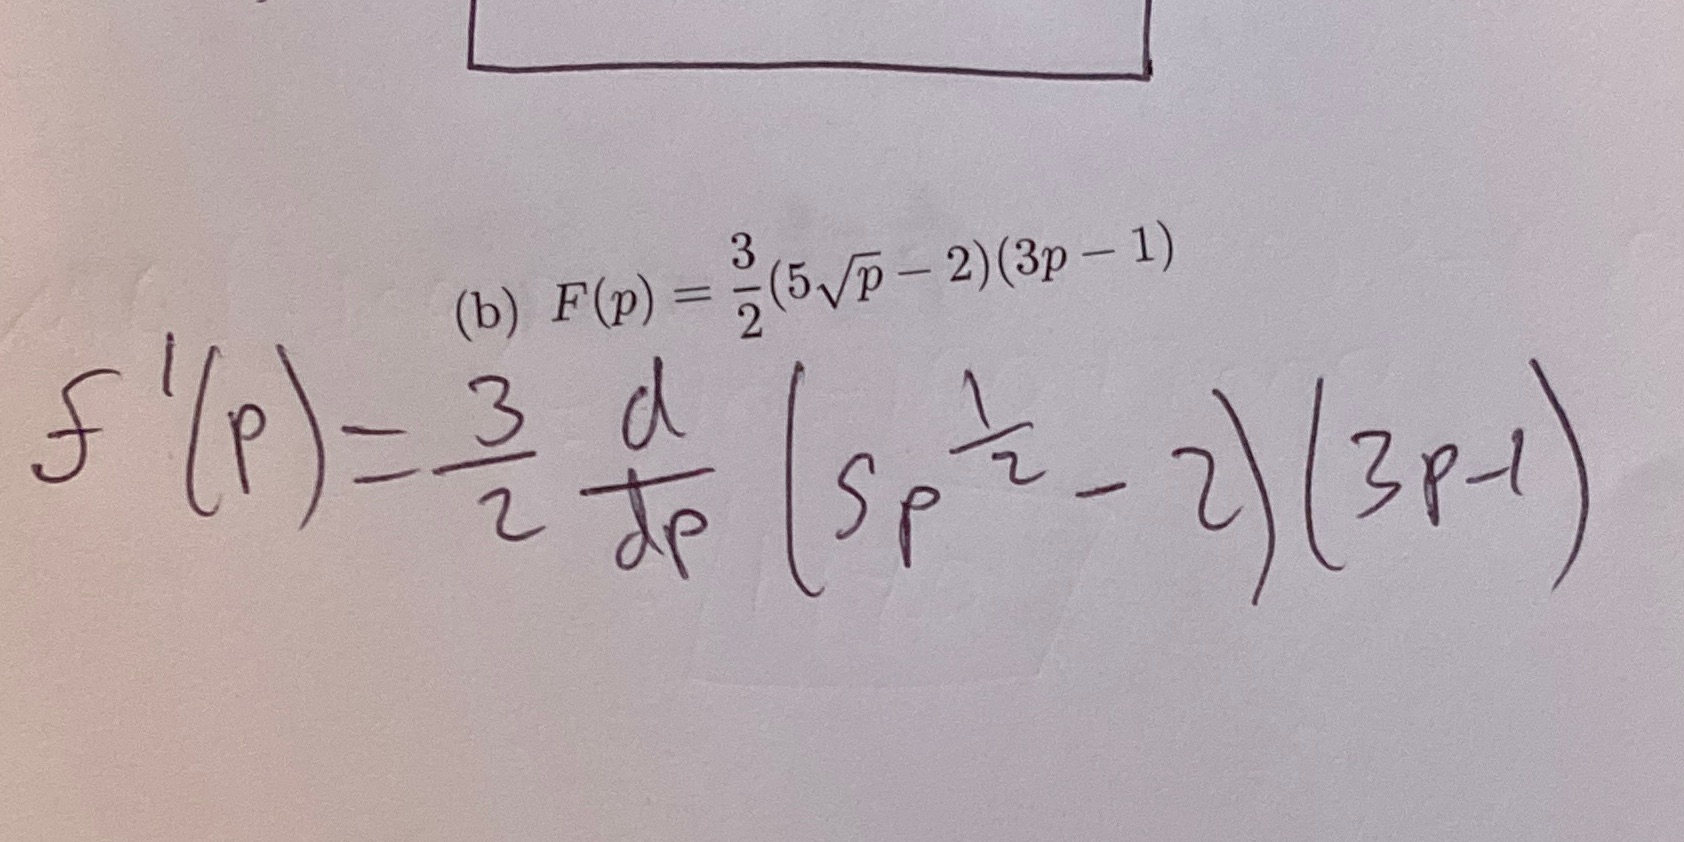 (b) F(p) = \frac{3}{2}(5\sqrt{p} - 2)(3p - 1)
f'(p) = \frac{3}{2} \frac{d}{dp} (5p^{\frac{1}{2}} - 2)(3p-1)